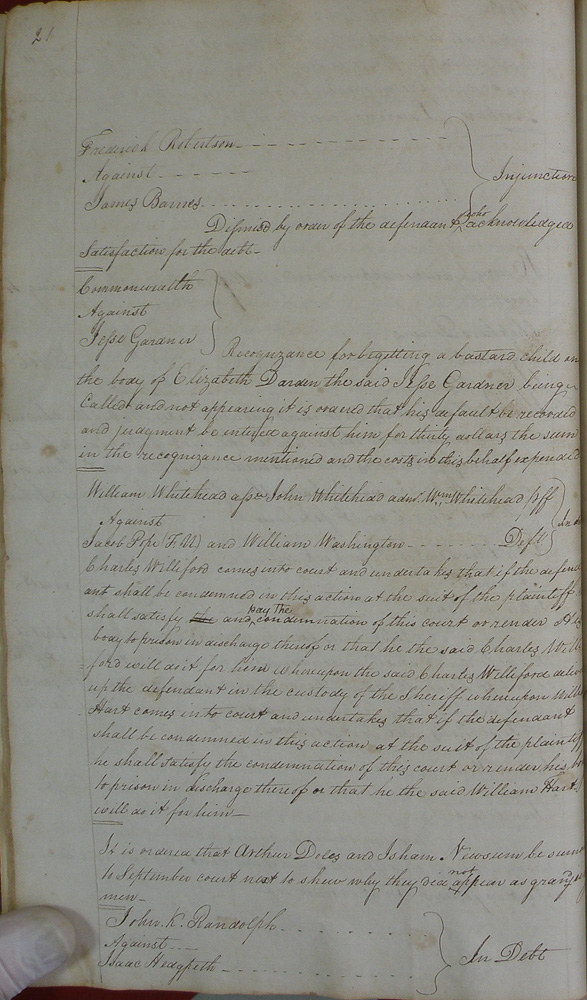 Frederick Robertson
Against
James Barnes
Injunction
Dismisd by order of the defendant who acknowledged
Satisfaction for the debt
Commonwealth
Against
Jesse Gardner
Recognizance for begetting a bastard child on
the body of Elizabeth Darden the said Jesse Gardner being
Called and not appearing it is ordered that his default be recorded
and judgment be entered against him for thirty dollars the sum
in the recognizance mentioned and the costs in this behalf expended
William Whitehead asse John Whitehead adms. Wm. Whitehead plff
Against
Jacob Pope (F.N) and William Washington Deft
Charles Williford comes into court and undertakes that if the defend
ant shall be condemned in this action at the suit of the plaintiff
shall satisfy the and pay the condemnation of this court or render his
body to prison in discharge thereof or that he the said Charles Willi
ford will do it for him whereupon the said Charles Williford deliv
up the defendant in the custody of the Sheriff whereupon Will
Hart comes into court and undertakes that if the defendant
shall be condemned in this action at the suit of the plaintiff
he shall satisfy the condemnation of this court or render his bo
to prison in discharge thereof or that he the said William Hart
will do it for him
It is ordered that Arthur Doles and Isham Newsum be sum
to September court next to shew why they did not appear as grand ju
men
John. K. Randolph
Against
Isaac Hedgpeth
In Debt